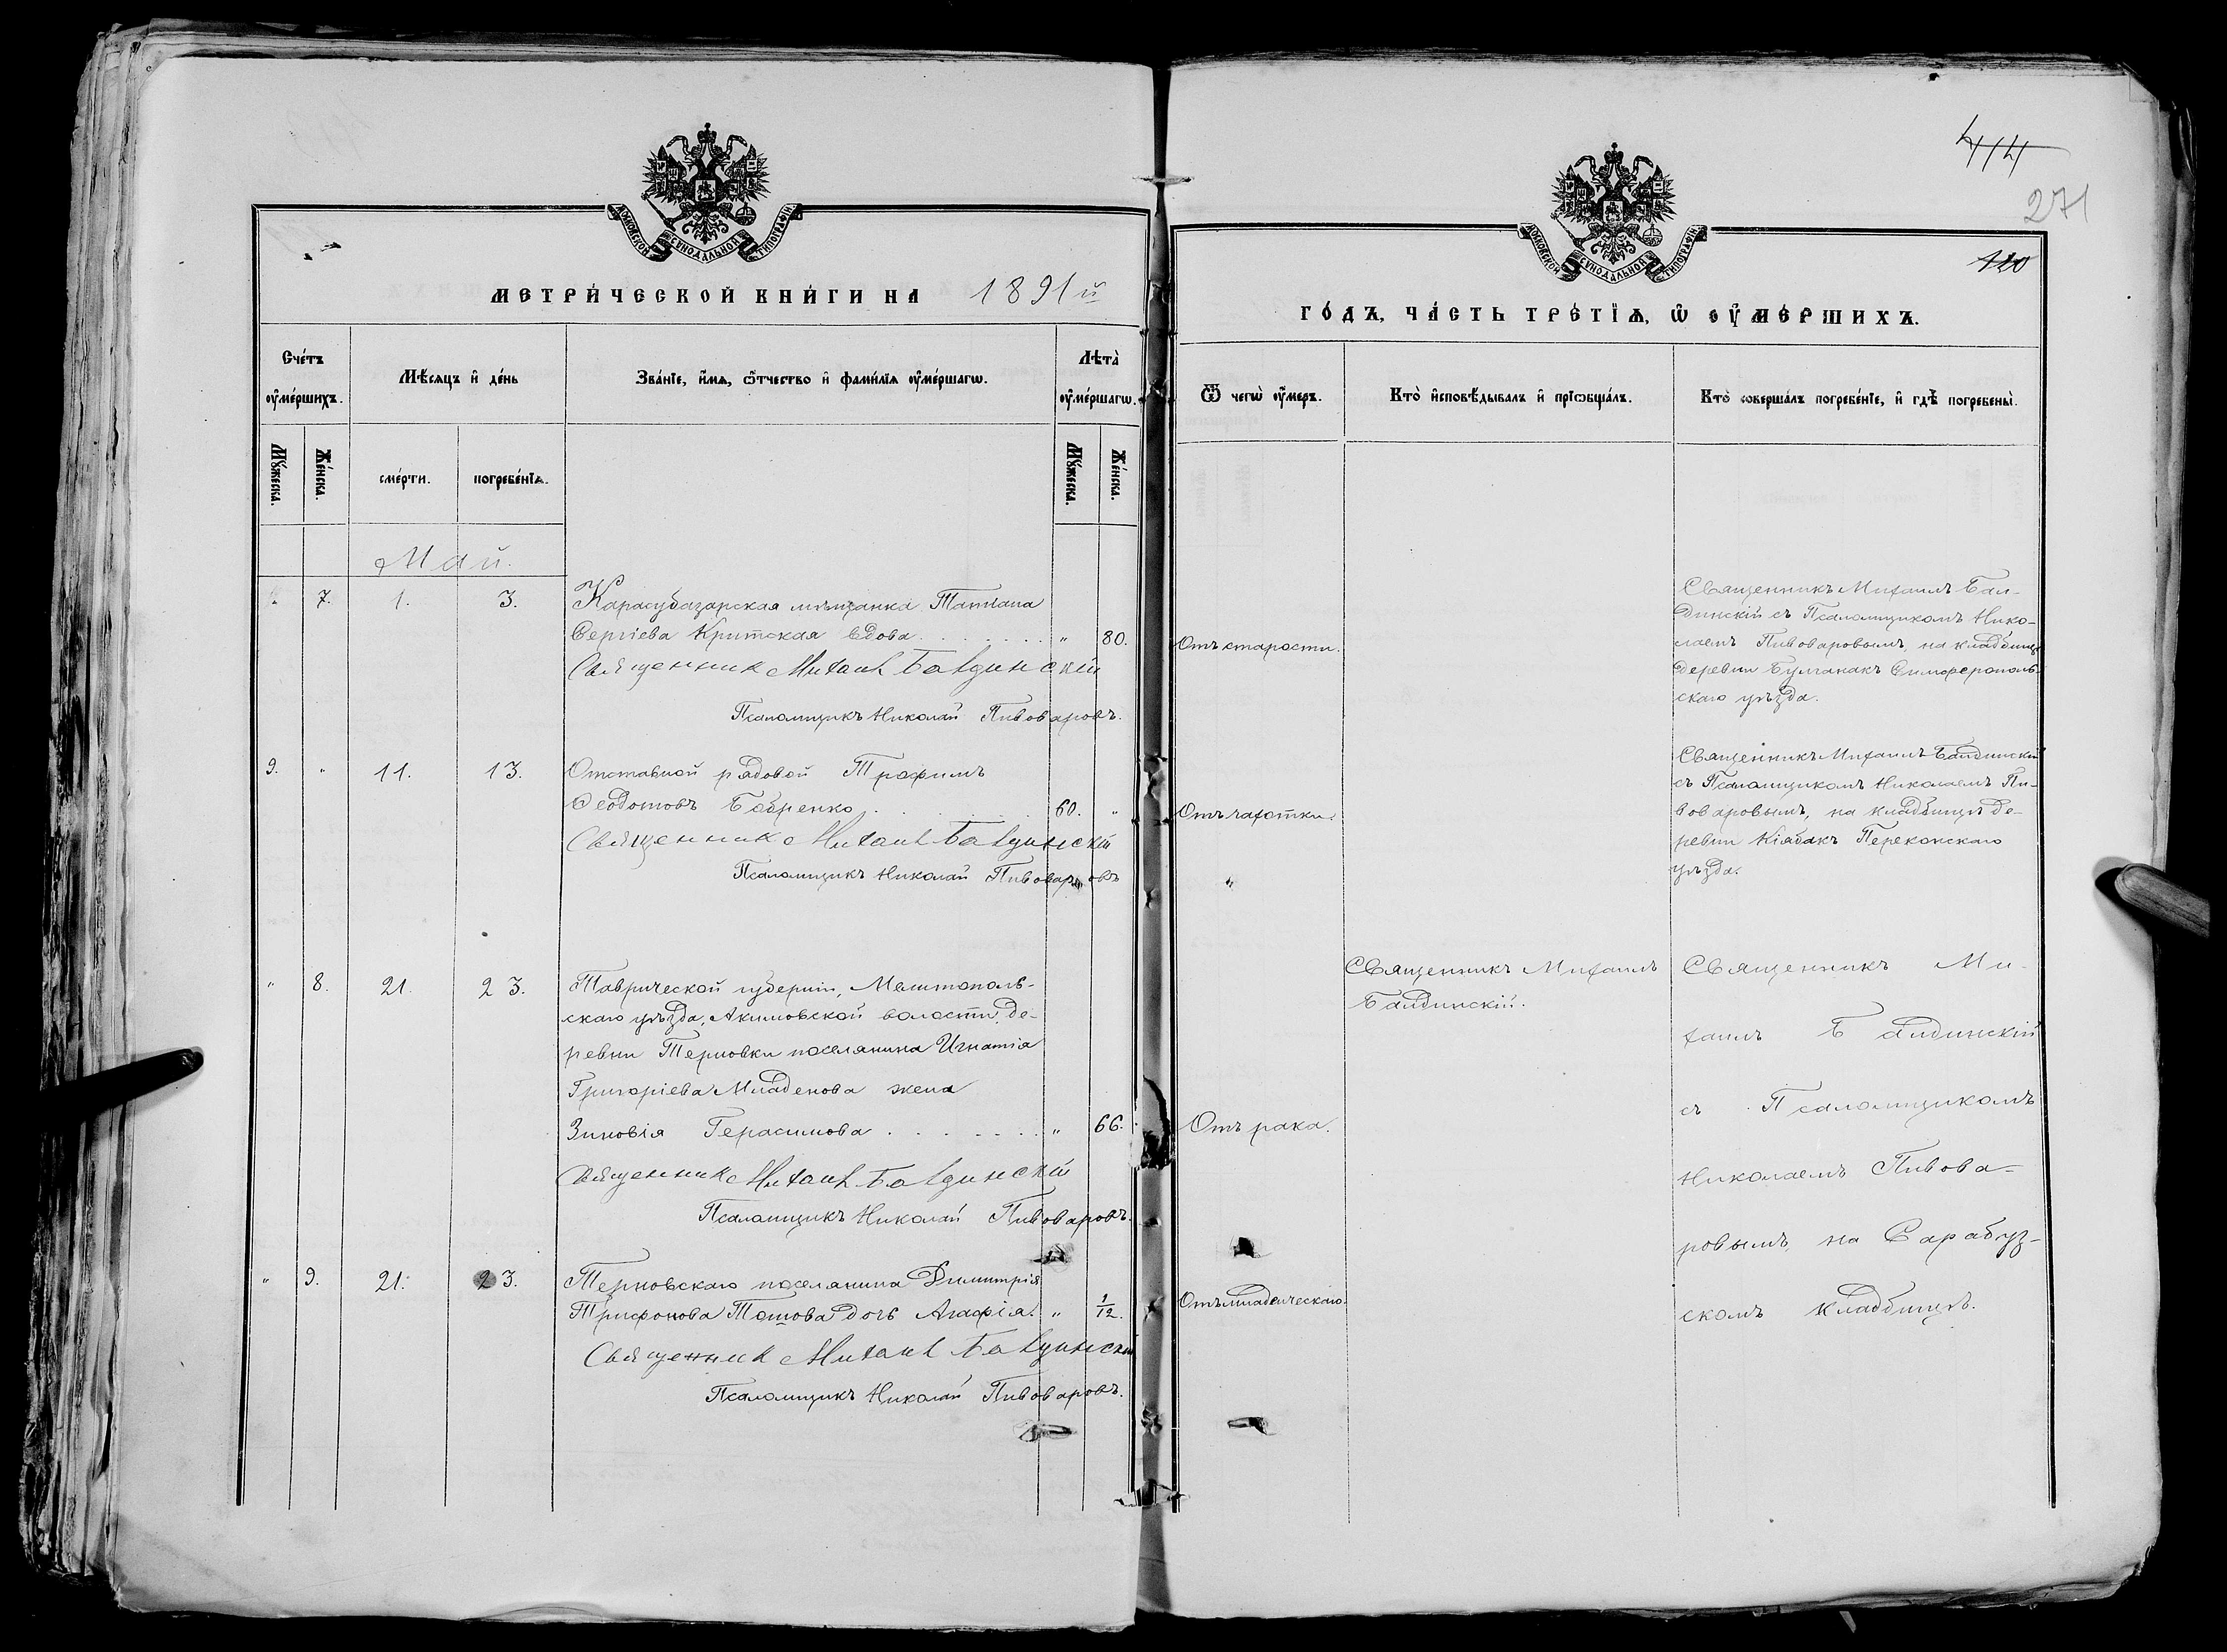 МОСКОВСКОЙ СѴНОДАЛЬНОЙ ТИПОГРАФІИ.
МЕТРИ́ЧЕСКОЙ КНИ́ГИ НА 1891й
Сче́тъ ᲂу҆ме́ршихъ.
Мѣ́сяцъ и҆ де́нь
Зва́нїе, и҆́мѧ, ѻ҆́тчество и҆ фами́лїѧ ᲂу҆ме́ршагѡ.
Лѣта̀ ᲂу҆ме́ршагѡ.
Мꙋ́жеска.
Же́нска.
сме́рти.
погребе́нїѧ.
Мꙋ́жеска.
Же́нска.
Май.
7. 1. 3. Карасубазарская мѣщанка Татіана
Сергіева Критская вдова . . . . . . . „ 80.
Священникъ Михаилъ Балдинскій
Псаломщикъ Николай Пивоваровъ.
9. „ 11. 13. Отставной рядовой Трофимъ
Ѳеодотовъ Бобренко . . . . . . . 60. „
Священникъ Михаилъ Балдинскій
Псаломщикъ Николай Пивоваровъ
„ 8. 21. 23. Таврической губерніи, Мелитополь-
скаго уѣзда, Акимовской волости, де-
ревни Терновки поселянина Игнатія
Григоріева Младенова жена
Зиновія Герасимова . . . . . . . „ 66.
Священникъ Михаилъ Балдинскій
Псаломщикъ Николай Пивоваровъ.
„ 9. 21. 23. Терновскаго поселянина Димитрія
Трифонова Тотова дочь Агафія. „ 1/12.
Священникъ Михаилъ Балдинскій
Псаломщикъ Николай Пивоваровъ.
414
271
120
МОСКОВСКОЙ СѴНОДАЛЬНОЙ ТИПОГРАФІИ.
ГО́ДЪ, ЧА́СТЬ ТРЕ́ТЇѦ, Ѡ҆ ᲂУ҆МЕ́РШИХЪ.
Ѿ чегѡ̀ ᲂу҆́меръ.
Кто̀ и҆сповѣ́дывалъ и҆ прїѡбща́лъ.
Кто̀ соверша́лъ погребе́нїе, и҆ гдѣ̀ погребены̀.
Отъ старости.
Священникъ Михаилъ Бал-
динскій съ Псаломщикомъ Нико-
лаемъ Пивоваровымъ, на кладбищѣ
деревни Булганакъ Симферополь-
скаго уѣзда.
Отъ чахотки.
„
Священникъ Михаилъ Балдинскій
съ Псаломщикомъ Николаемъ Пи-
воваровымъ, на кладбищѣ де-
ревни Кіябакъ Перекопскаго
уѣзда.
Отъ рака.
Священникъ Михаилъ
Балдинскій.
Отъ младенческаго.
Священникъ Ми-
хаилъ Балдинскій
съ Псаломщикомъ
Николаемъ Пивова-
ровымъ, на Сарабуз-
скомъ кладбищѣ.